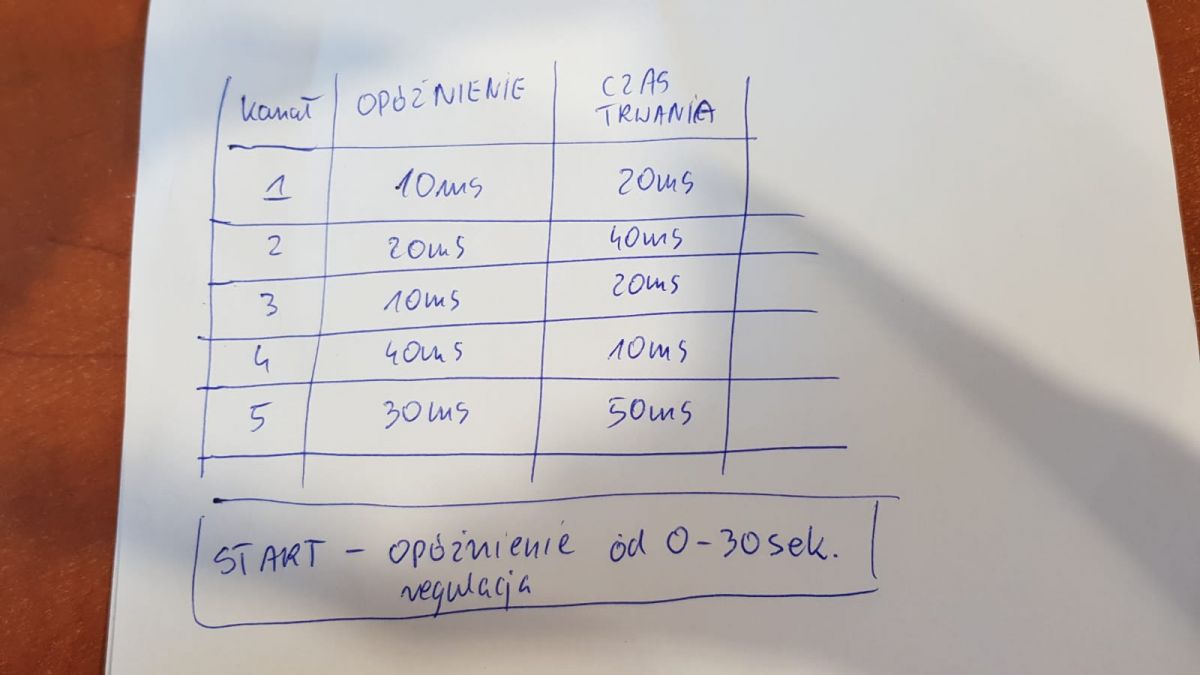 Kanał OPÓŹNIENIE CZAS TRWANIA
1 10ms 20ms
2 20ms 40ms
3 10ms 20ms
4 40ms 10ms
5 30ms 50ms
START - OPÓŹNIENIE od 0-30sek.
regulacja